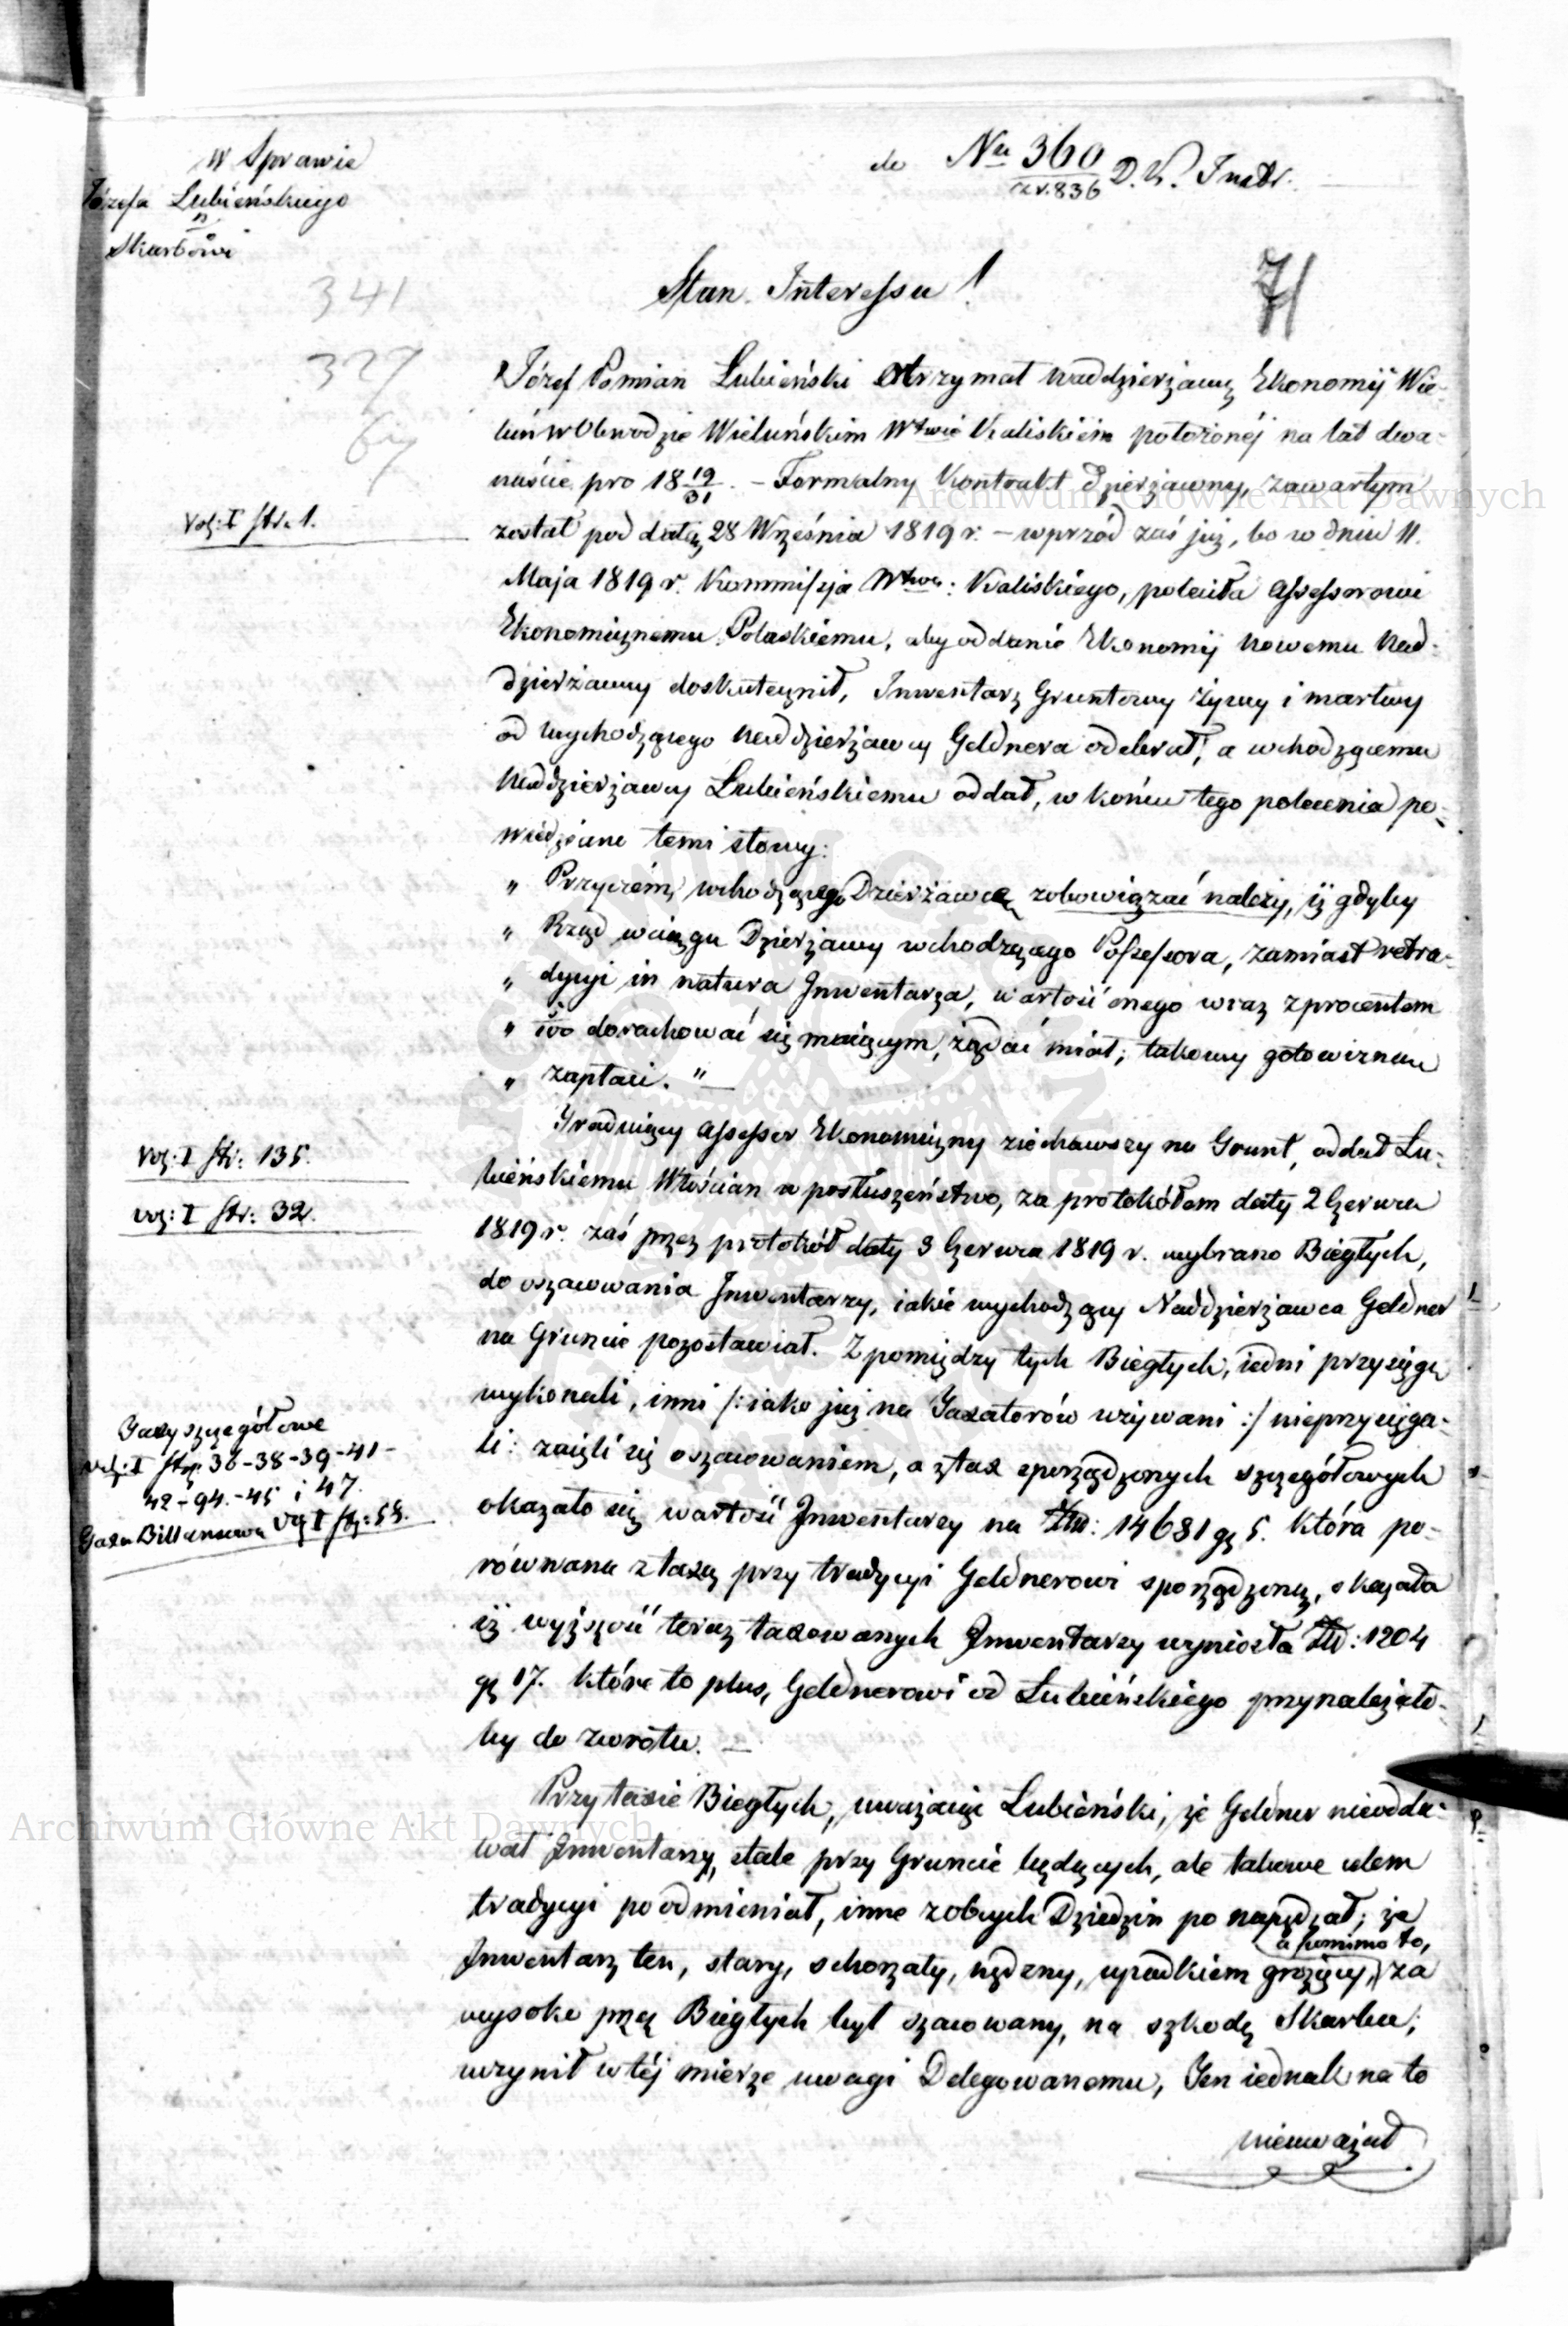 W Sprawie
Józefa Lubieńskiego
n
Skarbowi
do Nru 360 D. K. Instr.
ex r. 836
341
327
67
71
Stan Interessu!
Józef Pomian Lubieński otrzymał Naddzierżawę Ekonomij Wie-
luń w Obwodzie Wieluńskim Wtwie Kaliskiém położonéj na lat dwa-
naście pro 18 19/31. – Formalny Kontrakt dzierżawny, zawartym
Vol: I str. 1.
został pod datą 28 Września 1819 r. – wprzód zaś już, bo w dniu 11.
Maja 1819 r. Kommissyja Wtwa: Kaliskiego, poleciła Assessorowi
Ekonomicznemu Polaskiemu, aby oddanie Ekonomij nowemu Nad-
dzierżawcy doskutecznił, Inwentarz Gruntowy żywy i martwy
od wychodzącego Naddzierżawcy Geldnera odebrał, a wchodzącemu
Naddzierżawcy Lubieńskiemu oddał, w końcu tego polecenia po-
wiedziane temi słowy:
„ Przyczém wchodzącego Dzierżawcę zobowiązać należy, iż gdyby
„ Rząd w ciągu Dzierżawy wchodzącego Possessora, zamiast retra-
„ dycyi in natura Inwentarza, wartość onego wraz z procentem
„ 5/100 dorachować się maiącym, żądać miał, takowy gotowizną
„ zapłaci. " —
Traduiący Assessor Ekonomiczny ziechawszy na Grunt, oddał Lu-
Vol: I str: 135.
bieńskiemu Włościan w posłuszeństwo, za protokółem daty 2 Czerwca
Vol: I str: 32.
1819 r. zaś przez protokół daty 3 Czerwca 1819 r. wybrano Biegłych,
do oszacowania Inwentarzy, iakie wychodzący Naddzierżawca Geldner
na Gruncie pozostawiał. Z pomiędzy tych Biegłych, iedni przysięgę
wykonali, inni /: iako już na Taxatorów używani :/ nieprzysięga-
Taxy szczegółowe
Vol: I str 36-38-39-41-
42-94.-45 i 47.
Taxa Billansowa Vol I str: 58.
li: zaięli się oszacowaniem, a z tax sporządzonych szczegółowych
okazało się wartość Inwentarzy na Złtr: 14681 gr 5. która po-
równana z taxą przy tradycyi Geldnerowi sporządzoną, okazała
iż wyższość teraz taxowanych Inwentarzy wyniosła Złt: 1204
gr 17. które to plus, Geldnerowi od Lubieńskiego przynależało-
by do zwrotu. —
Przy taxie Biegłych, uważaiąc Lubieński, że Geldner nieodda-
wał Inwentarzy, stale przy Gruncie będących, ale takowe celem
tradycyi poodmieniał, inne z obcych Dziedzin po napędzał; że
Inwentarz ten, stary, schorzały, nędzny, upadkiem grożący, a pomimo to, za
wysoko przez Biegłych był szacowany, na szkodę Skarbu;
uczynił w téj mierze uwagi Delegowanemu, Ten iednak na to
nieuważał
Archiwum Główne Akt Dawnych
Archiwum Główne Akt Dawnych